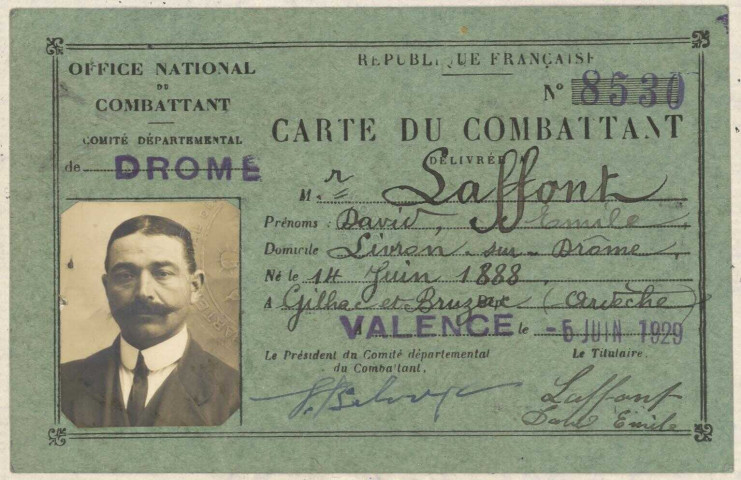 OFFICE NATIONAL
DU
COMBATTANT
COMITÉ DÉPARTEMENTAL
de DROME
RÉPUBLIQUE FRANÇAISE
N° 8530
CARTE DU COMBATTANT
DÉLIVRÉE A
M. r Laffont
Prénoms : David, Emile
Domicile Livron-sur-Drôme,
Né le 14 Juin 1888
A Gilhac et Bruzac (Ardèche)
VALENCE le -5 JUIN 1929
Le Président du Comité départemental
du Combattant.
Le Titulaire.
Laffont
Emile